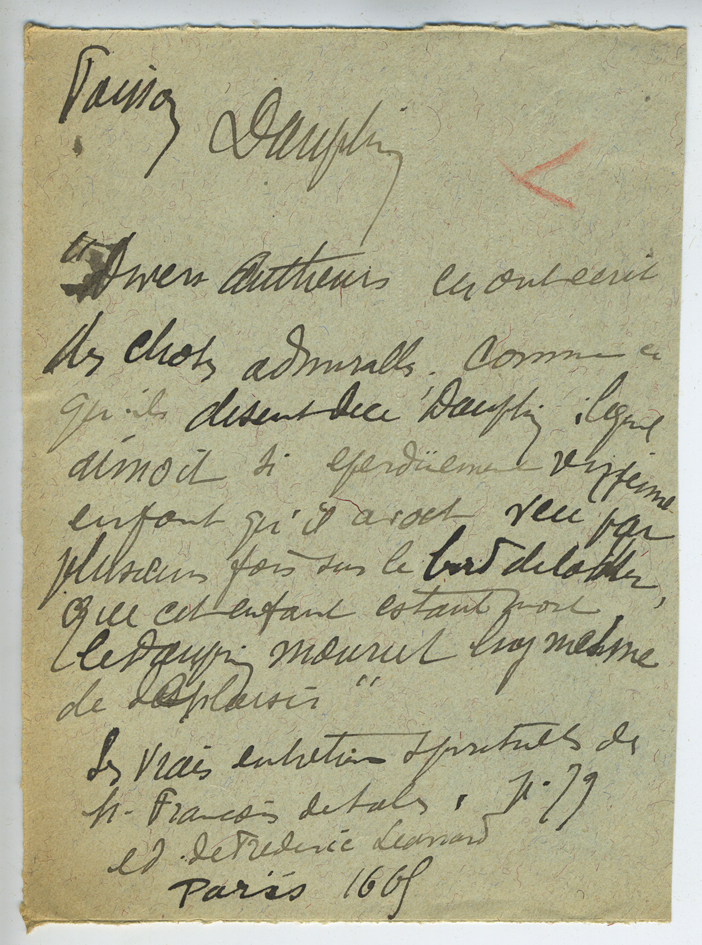 Poisson
Dauphin
"Divers Autheurs en ont escrit
des choses admirables, comme ce
qu'ils disent d'ce Dauphin, lequel
aimoit si eperdüement un jeune
enfant qu'il avoit veu par
plusieurs fois sur le bord de la Mer,
que cet enfant estant mort
le Dauphin mourut luy mesme
de desplaisir"
Les Vrais entretiens spirituels de
St. François de Sales, p. 79
ed. de Frederic Leonard
Paris 1665